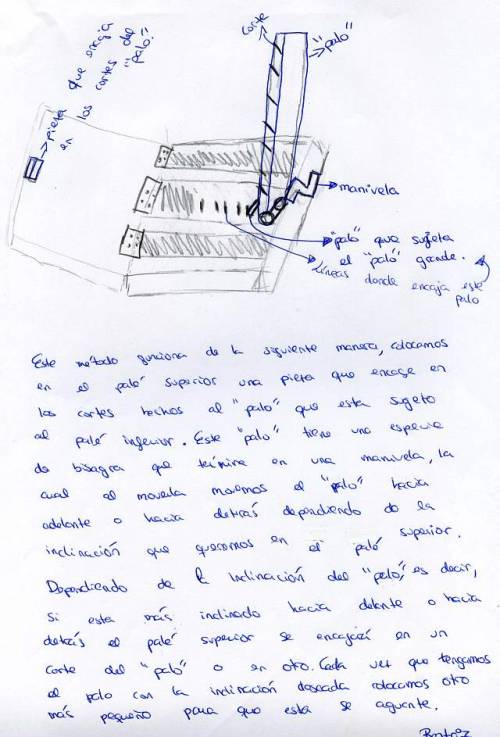 corte
"palo"
pieza que encaja
en los cortes del
"palo".
manivela
"palo" que sujeta
el "palo" grande.
Líneas donde encaja este
palo
Este método funciona de la siguiente manera, colocamos
en el palé superior una pieza que encage en
los cortes hechos al "palo" que esta sugeto
al palé inferior. Este "palo" tiene una especie
de bisagra que termina en una manivela, la
cual al moverla movemos el "palo" hacia
adelante o hacia detrás dependiendo de la
inclinación que queremos en el palé superior.
Dependiendo de la inclinación del "palo", es decir,
si esta más inclinado hacia delante o hacia
detrás el palé superior se encajará en un
corte del "palo" o en otro. Cada vez que tengamos
el palo con la inclinación deseada colocamos otro
más pequeño para que esta se aguante.
Beatriz